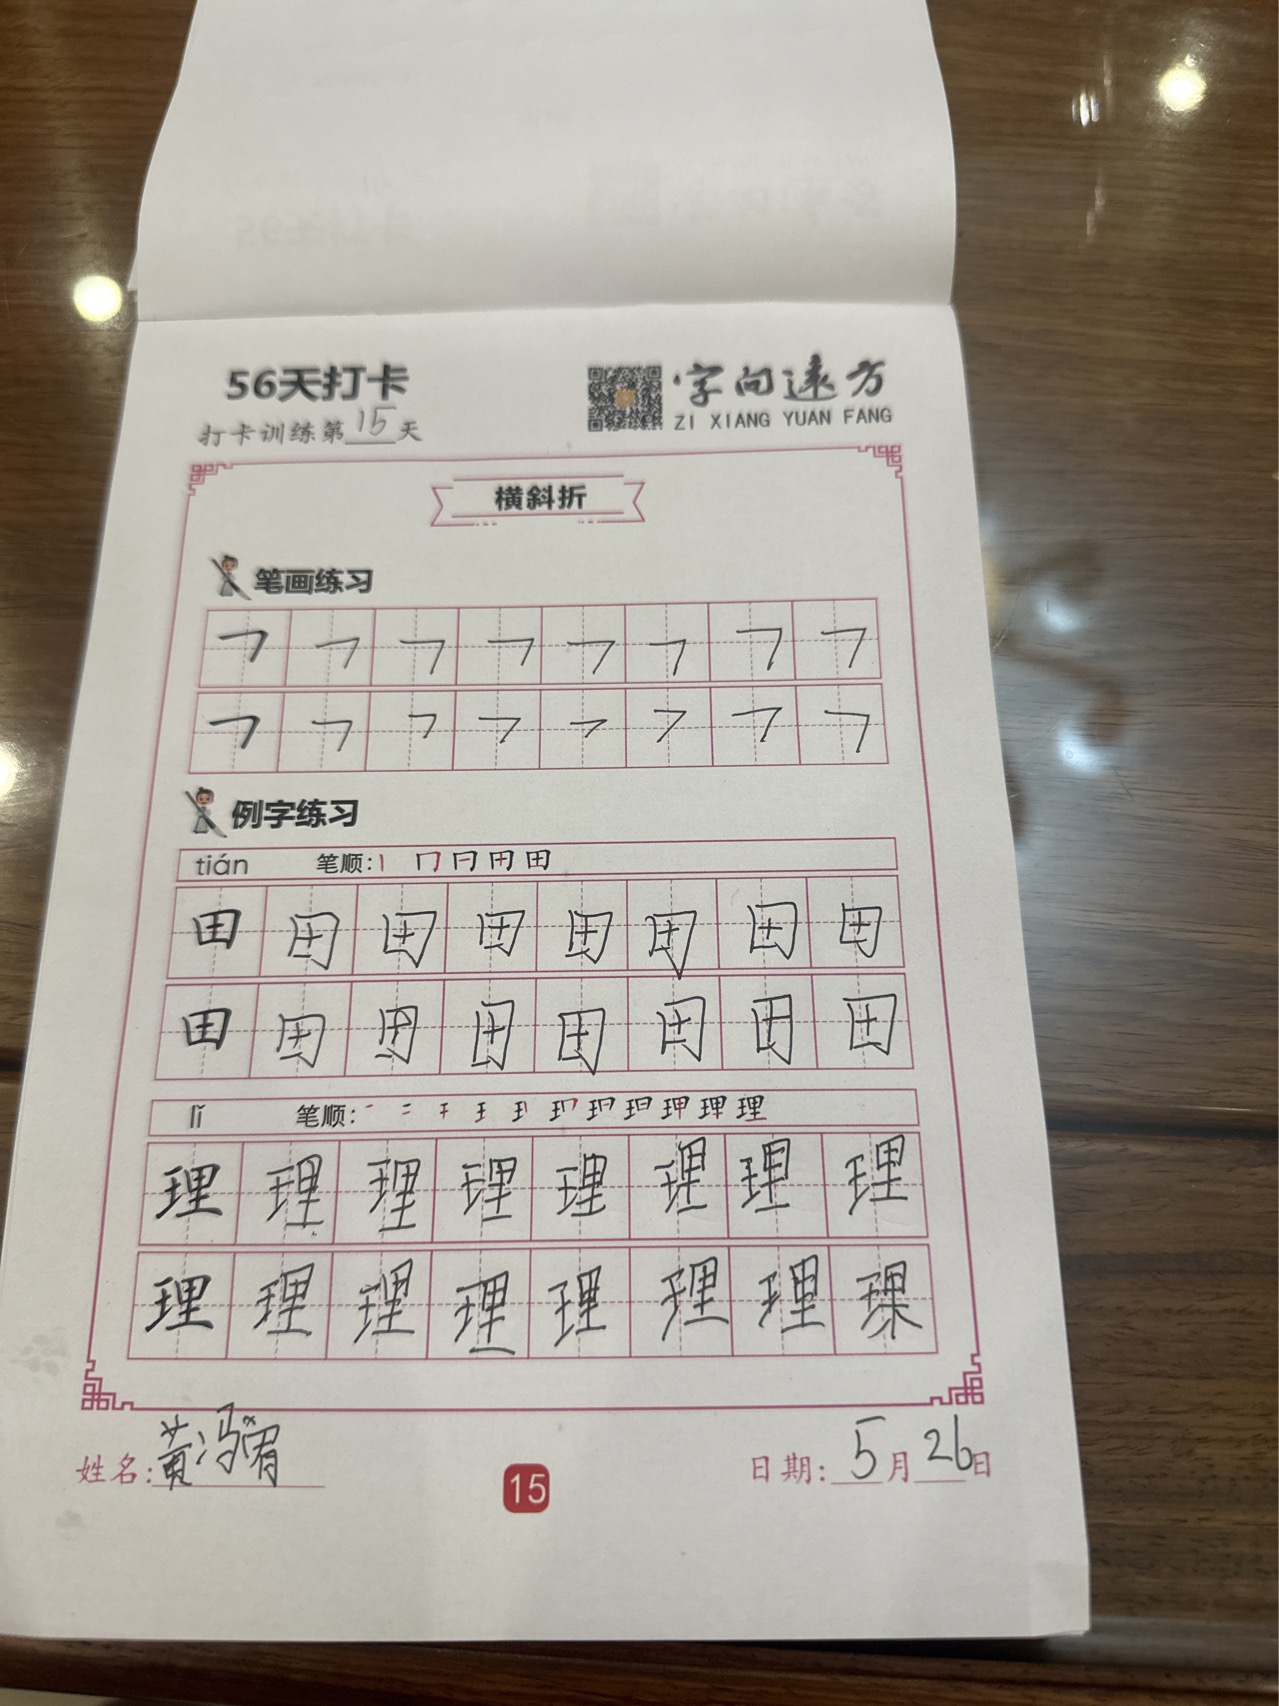 56天打卡
字向远方
打卡训练第15天
ZI XIANG YUAN FANG
横斜折
笔画练习
㇇ ㇇ ㇇ ㇇ ㇇ ㇇ ㇇ ㇇
㇇ ㇇ ㇇ ㇇ ㇇ ㇇ ㇇ ㇇
例字练习
tián 笔顺: 丨 冂 冃 田 田
田 田 田 田 田 田 田 田
田 田 田 田 田 田 田 田
lǐ 笔顺:
理 理 理 理 理 理 理 理
理 理 理 理 理 理 理 理
姓名: 黄冯宥
日期: 5月26日
15